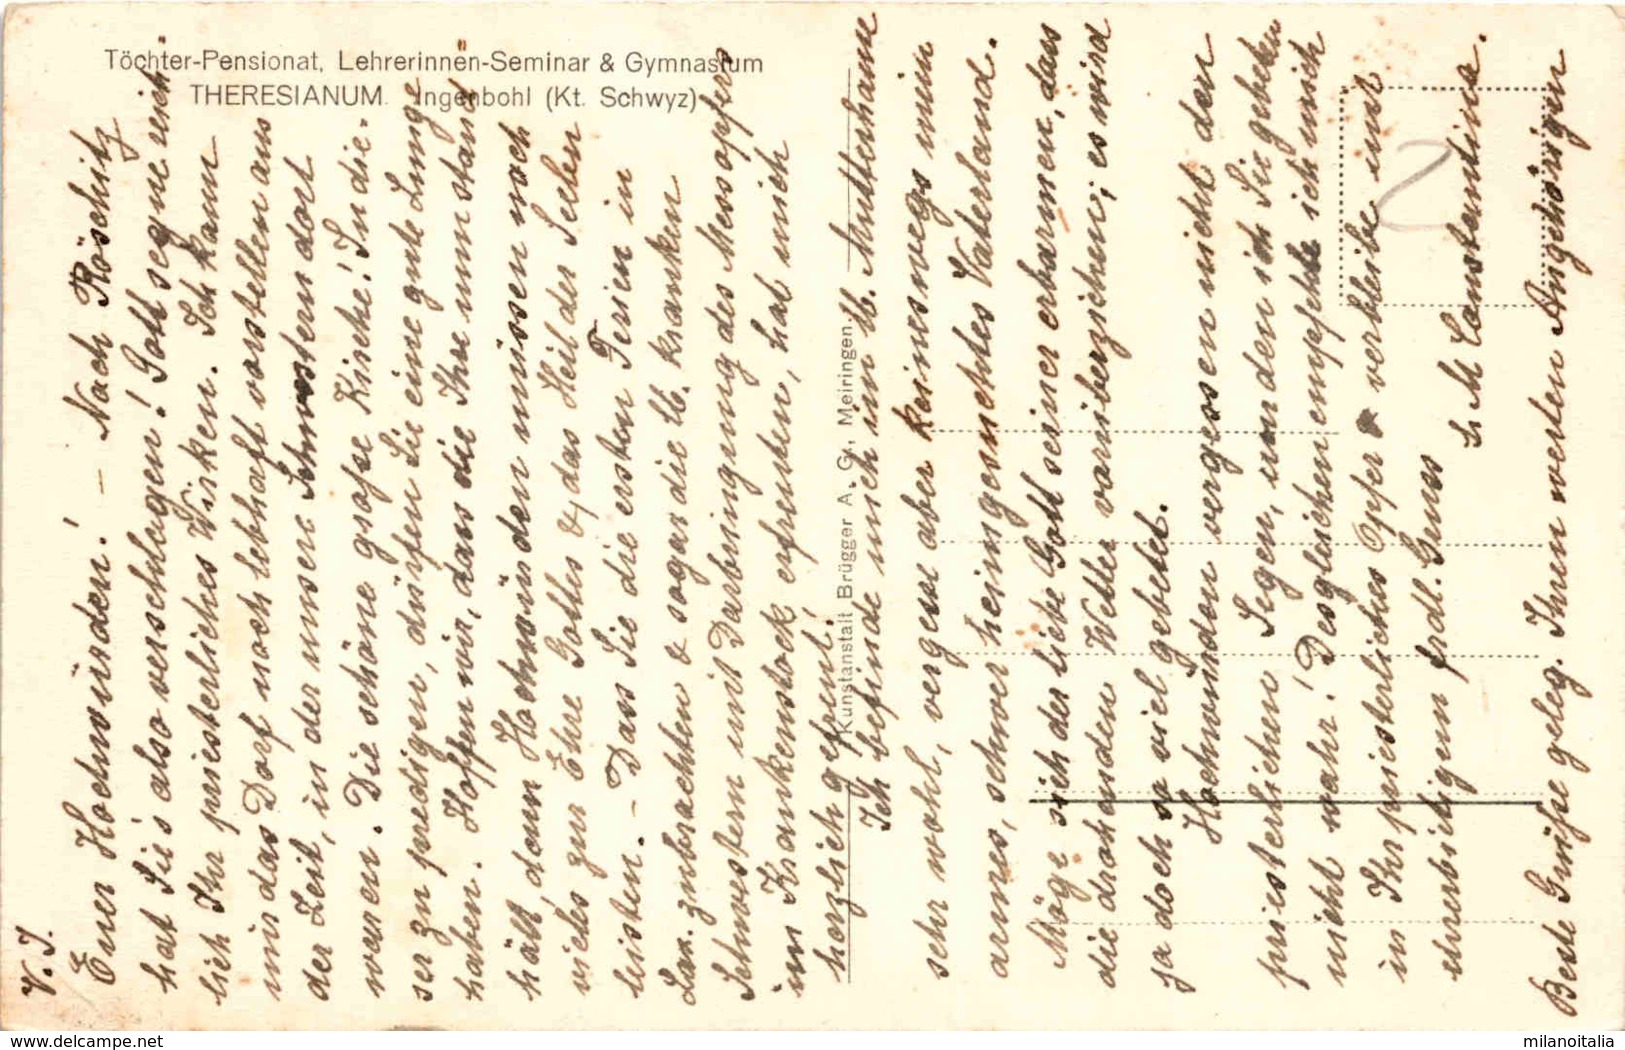 Töchter-Pensionat, Lehrerinnen-Seminar & Gymnasium
THERESIANUM. Ingenbohl (Kt. Schwyz)
Kunstanstalt Brügger A. G., Meiringen.
V. J.
Euer Hochwürden! – Nach Röschitz
hat Sie's also verschlagen! Gott segne reich-
lich Ihr priesterliches Wirken. Ich kann
mir das Dorf noch lebhaft vorstellen aus
der Zeit, in der unsere Schwestern dort
waren. Die schöne grosse Kirche! In die-
ser zu predigen, dürfen Sie eine gute Lunge
haben. Hoffen wir, dass die Ihre nun stand
hält, denn Hochwürden müssen noch
vieles zur Ehre Gottes & das Heil der Seelen
leisten. – Dass Sie die ersten Ferien in
zubrachten & sogar die lb. kranken
Schwestern mit Darbringung des Messopfers
im Krankenstock erfreuten, hat mich
herzlich gefreut.
Ich befinde mich im lb. Mutterhause
sehr wohl, vergesse aber keineswegs mein
armes, schwer heimgesuchtes Vaterland.
Möge sich der liebe Gott seiner erbarmen, dass
die drohenden Wetter vorüberziehen; es wird
ja doch so viel gebetet.
Hochwürden vergessen nicht den
priesterlichen Segen, um den ich Sie gebeten
nicht wahr! Desgleichen empfehle ich mich
in Ihr priesterliches Opfer verbleibe mit
ehrerbietigem frdl. Gruss
S. M. Constantina.
Beste Grüsse geleg. Ihren werten Angehörigen
milanoitalia
www.delcampe.net